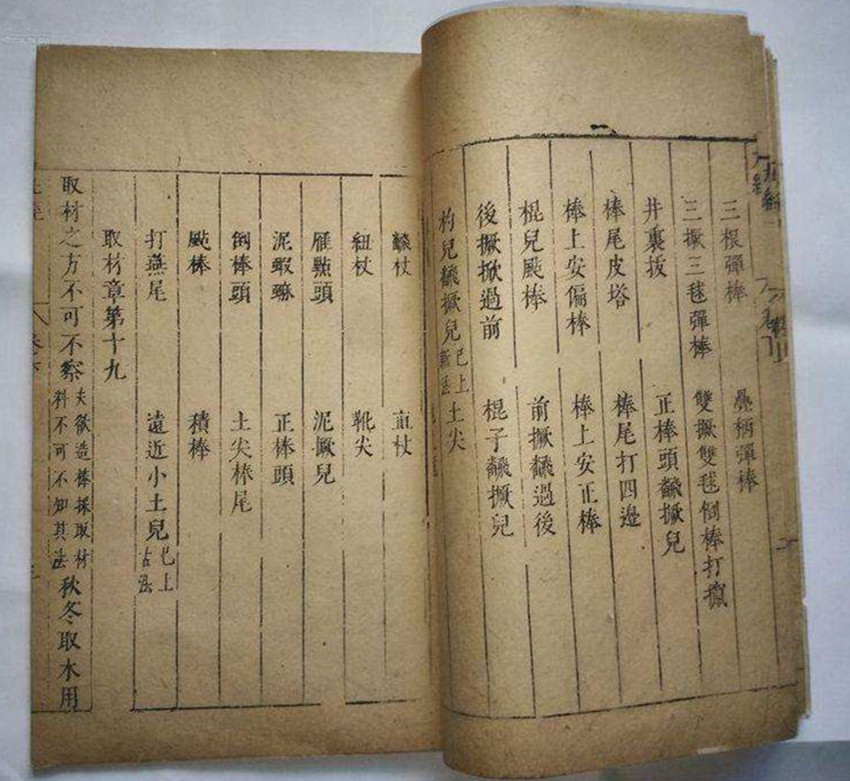 三根彈棒 疊柄彈棒
三撅三毬彈棒 雙撅雙毬倒棒打
井裏拔 正棒頭飜撅兒
棒尾皮塔 棒尾打四邊
棒上安偏棒 棒上安正棒
棍兒颩棒 前撅飜過後
後撅掀過前 棍子飜撅兒
杓兒飜撅兒已上新法 土尖
飜杖 直杖
紐杖 靴尖
雁點頭 泥撅兒
泥蝦蟇 正棒頭
倒棒頭 土尖棒尾
颩棒 積棒
打燕尾 遠近小土兒已上古法
取材章第十九
取材之方不可不察夫欲造棒採取材料不可不知其法秋冬取木用